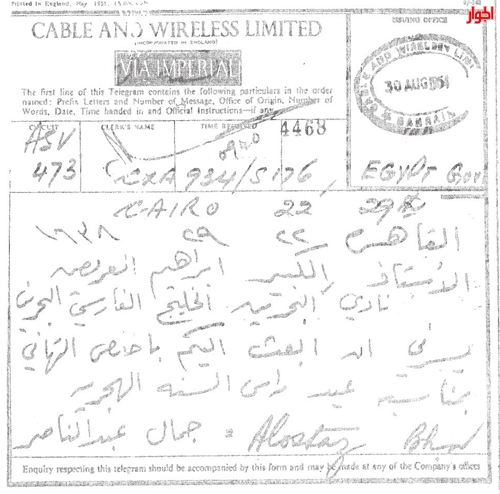 Printed in England, May 1951.
اجوار
CABLE AND WIRELESS LIMITED
(INCORPORATED IN ENGLAND)
VIA IMPERIAL
ISSUING OFFICE
CABLE AND WIRELESS LTD
30 AUG 54
BAHRAIN
The first line of this Telegram contains the following particulars in the order
named: Prefix Letters and Number of Message, Office of Origin, Number of
Words, Date, Time handed in and Official Instructions—if any.
CIRCUIT CLERK'S NAME TIME RECEIVED
4468
0940
473 CXA 934/S176 EGYPT Govt
CAIRO 22 29
القاهرة ٢٢ ٢٩ ١٦٣٨
الأستاذ الكبير ابراهيم العريض
نادي البحرين الخليج الفارسي البحرين
يسرني ان ابعث اليكم باخلص التهاني
بمناسبة عيد راس السنه الهجريه
جمال عبدالناصر
Alostaz
Enquiry respecting this telegram should be accompanied by this form and may be made at any of the Company's offices